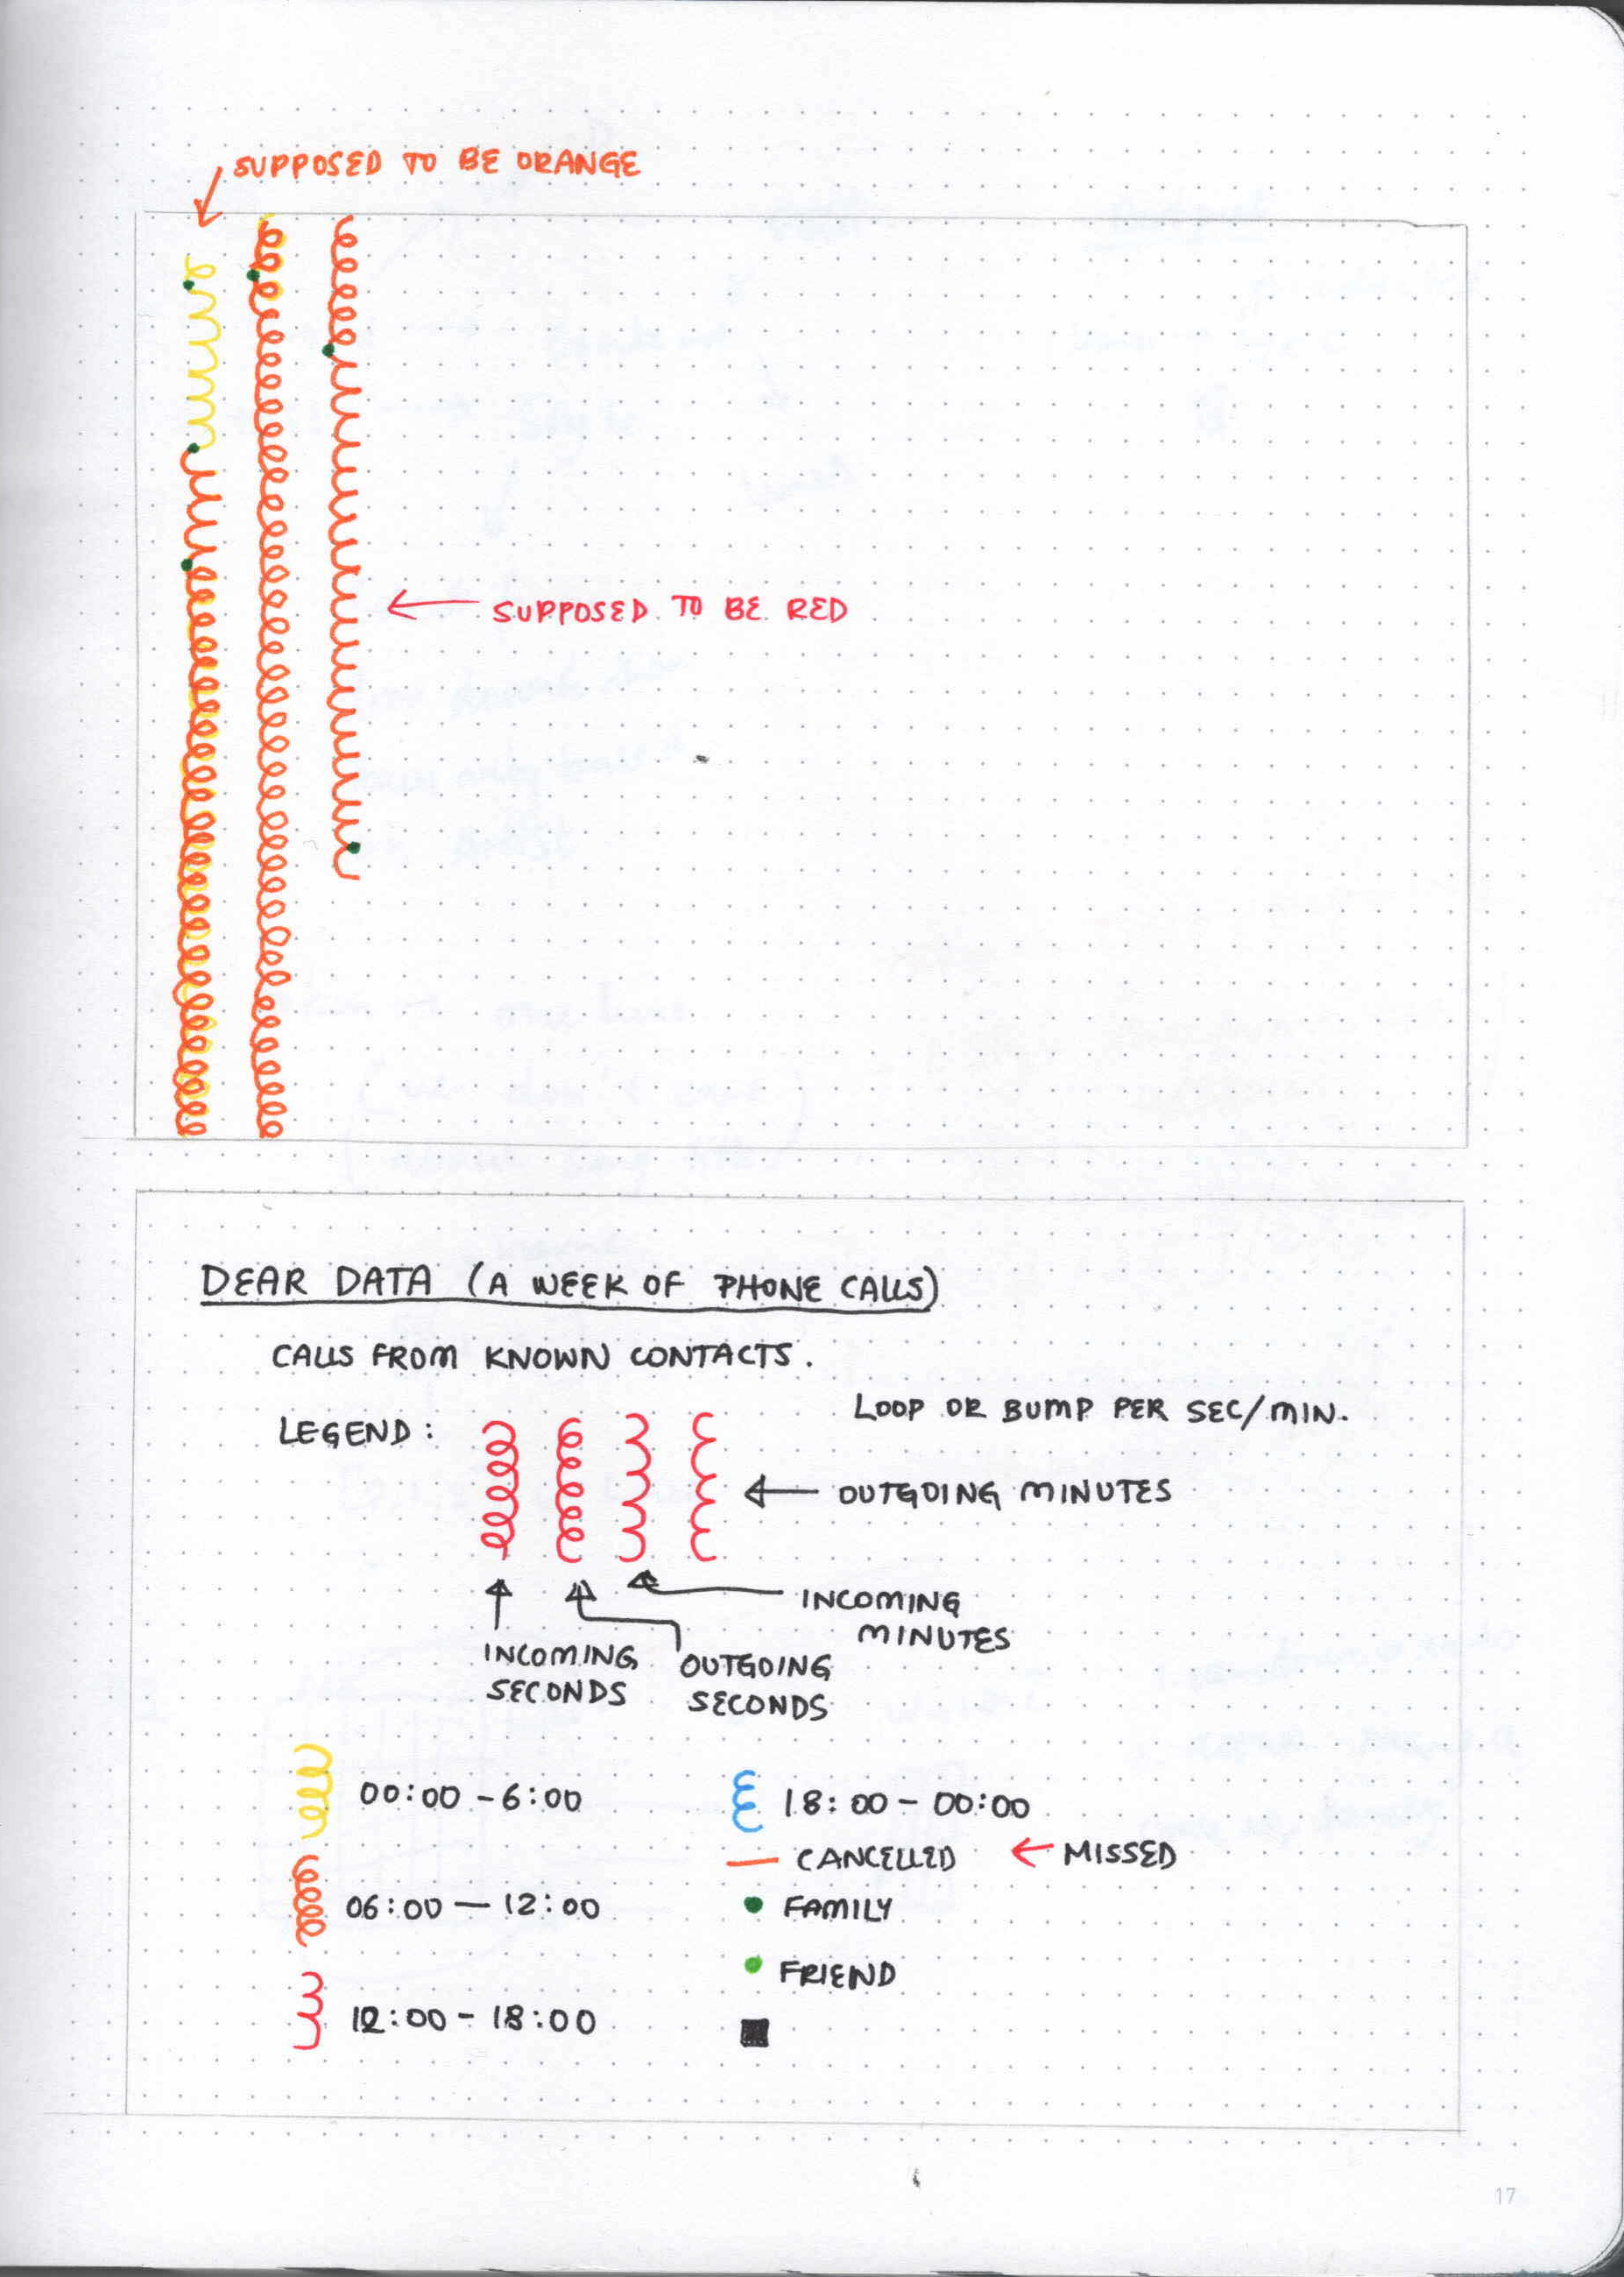 SUPPOSED TO BE ORANGE
SUPPOSED TO BE RED
DEAR DATA (A WEEK OF PHONE CALLS)
CALLS FROM KNOWN CONTACTS.
LOOP OR BUMP PER SEC/MIN.
LEGEND:
OUTGOING MINUTES
INCOMING
MINUTES
INCOMING
SECONDS
OUTGOING
SECONDS
00:00 - 6:00
18:00 - 00:00
CANCELLED
MISSED
06:00 — 12:00
FAMILY
FRIEND
12:00 - 18:00
17